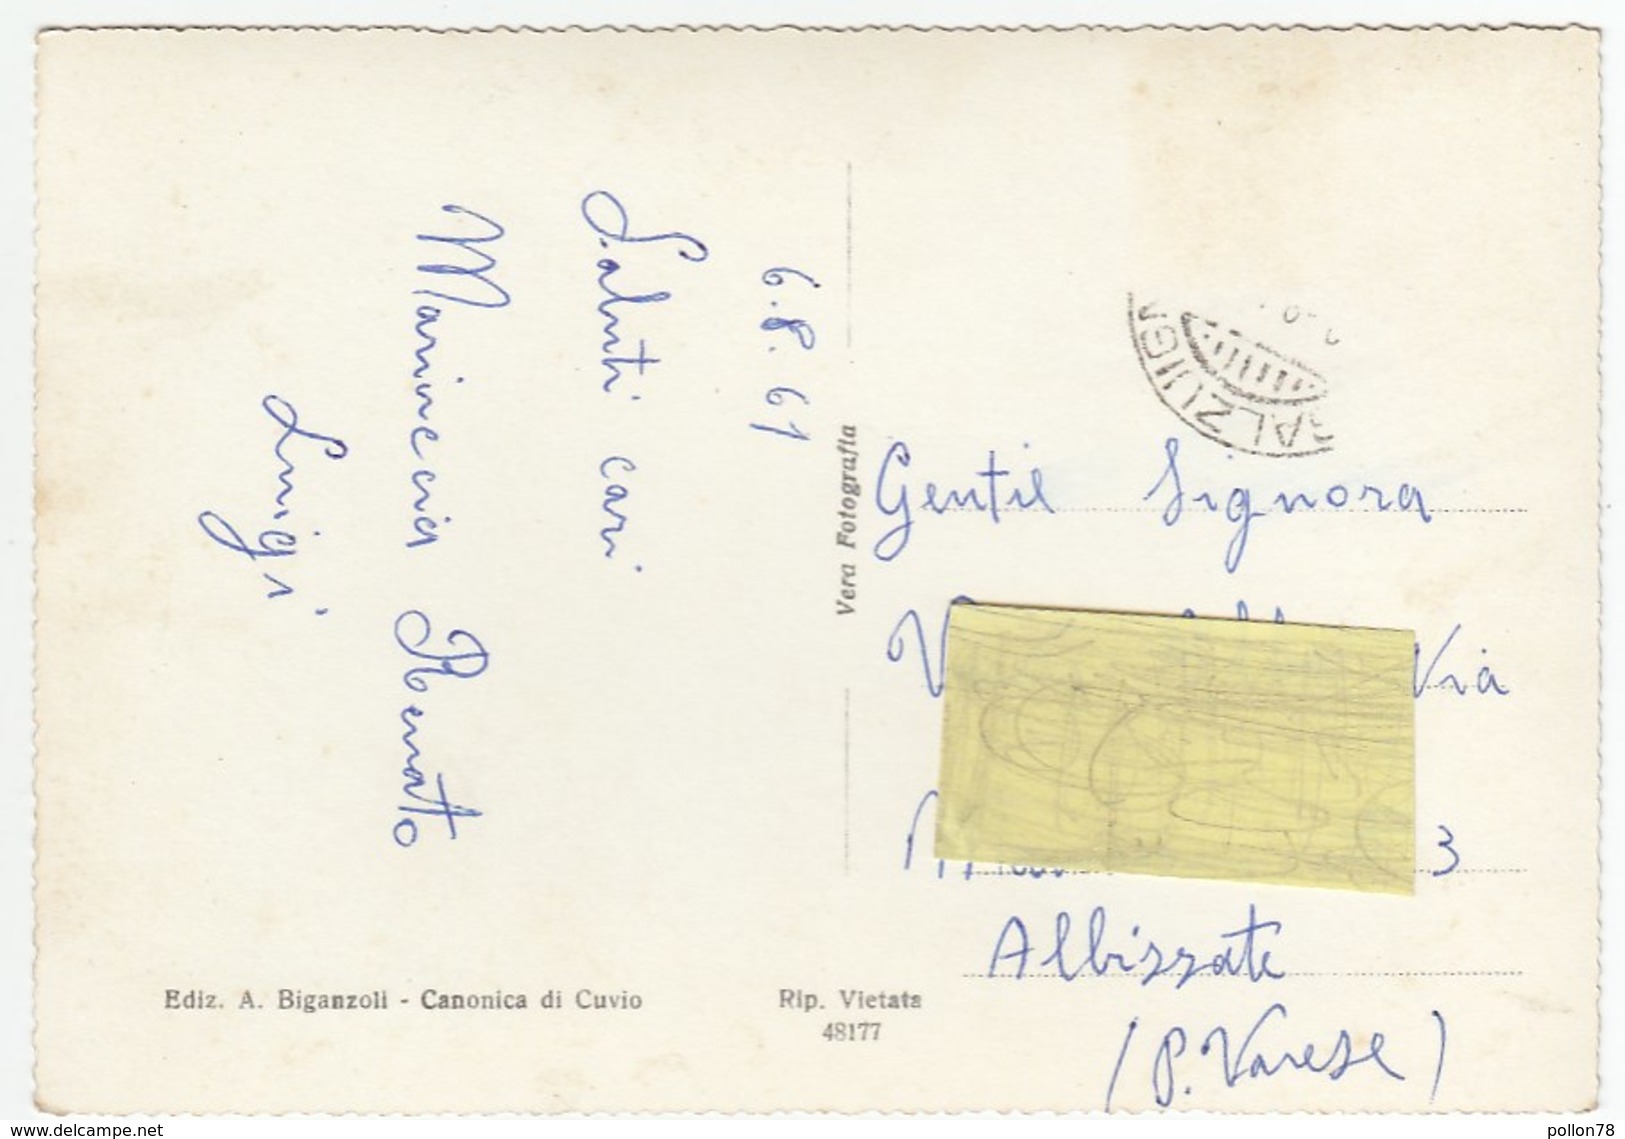 6.8.61
Saluti cari
Marinccia Renato
Luigi
Vera Fotografia
Gentil Signora
Via
3
Albizzate
(P. Varese)
Ediz. A. Biganzoli - Canonica di Cuvio
Rip. Vietata
48177
www.delcampe.net
pollon78